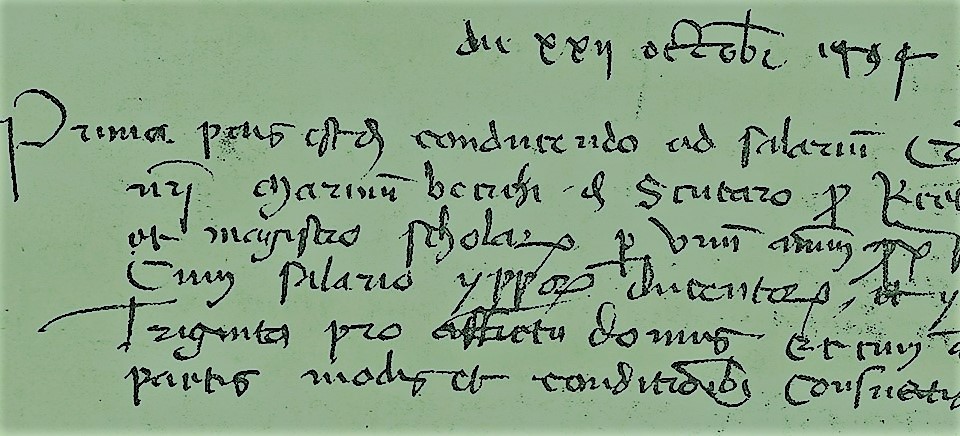 die xxij octobr 1494
Prima pars est de conducendo ad salariũ
nrj Marinũ becichi de Scutaro p Rec
et magistro scholar p vnũ annũ
Cum salario ypperor ducentor, et y
Triginta pro affictu domus et cum
pactis modis et conditiõibꝫ Consueti